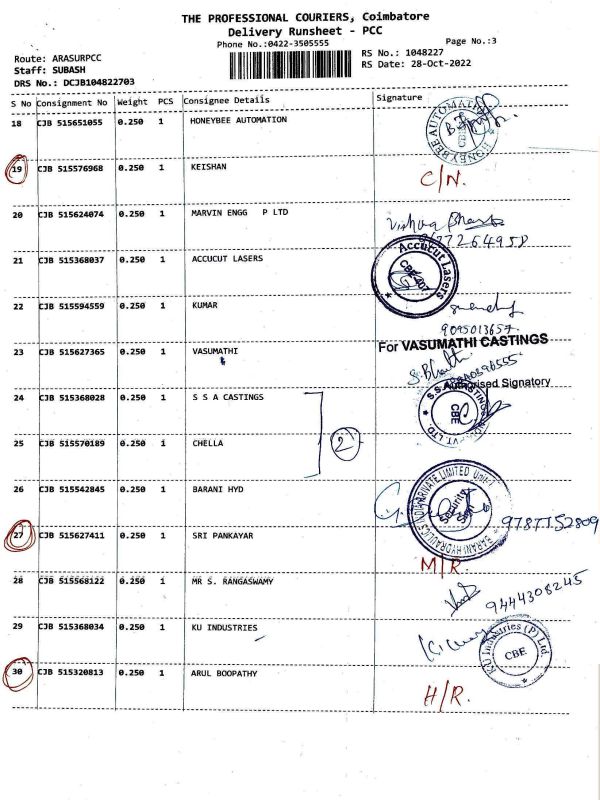 THE PROFESSIONAL COURIERS, Coimbatore
Delivery Runsheet - PCC
Phone No.:0422-3505555
Page No.:3
Route: ARASURPCC
RS No.: 1048227
Staff: SUBASH
RS Date: 28-Oct-2022
DRS No.: DCJB104822703
S No Consignment No Weight PCS Consignee Details Signature
18 CJB 515651055 0.250 1 HONEYBEE AUTOMATION
HONEYBEE AUTOMATION
19 CJB 515576968 0.250 1 KEISHAN C/N.
20 CJB 515624074 0.250 1 MARVIN ENGG P LTD
21 CJB 515368037 0.250 1 ACCUCUT LASERS
Accucut Lasers
22 CJB 515594559 0.250 1 KUMAR
9095013657
For VASUMATHI CASTINGS
23 CJB 515627365 0.250 1 VASUMATHI
Authorised Signatory
24 CJB 515368028 0.250 1 S S A CASTINGS
CBE
2
25 CJB 515570189 0.250 1 CHELLA
26 CJB 515542845 0.250 1 BARANI HYD
9787152809
27 CJB 515627411 0.250 1 SRI PANKAYAR
M/R.
28 CJB 515568122 0.250 1 MR S. RANGASWAMY
9444308245
29 CJB 515368034 0.250 1 KU INDUSTRIES
KU Industries (P) Ltd
CBE
30 CJB 515320813 0.250 1 ARUL BOOPATHY
H/R.